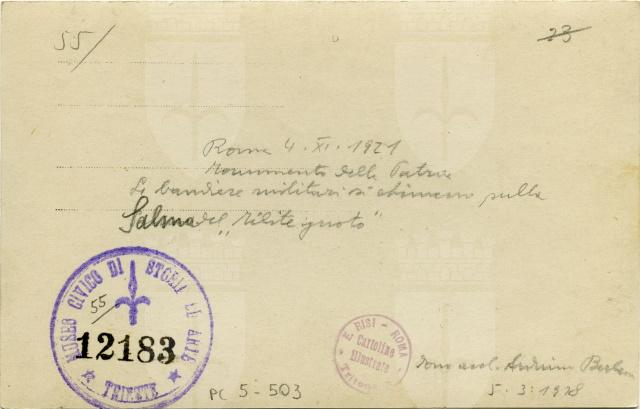 55/
23
Roma 4. XI. 1921
Monumento della Patria
Le bandiere militari si chinano sulla
Salma del "Milite ignoto"
MUSEO CIVICO DI STORIA ED ARTE
55/
12183
TRIESTE
E. RISI - ROMA
Cartoline
Illustrate
Tritone
dono col. Arduino Berlam
5.3.1928
PC 5-503